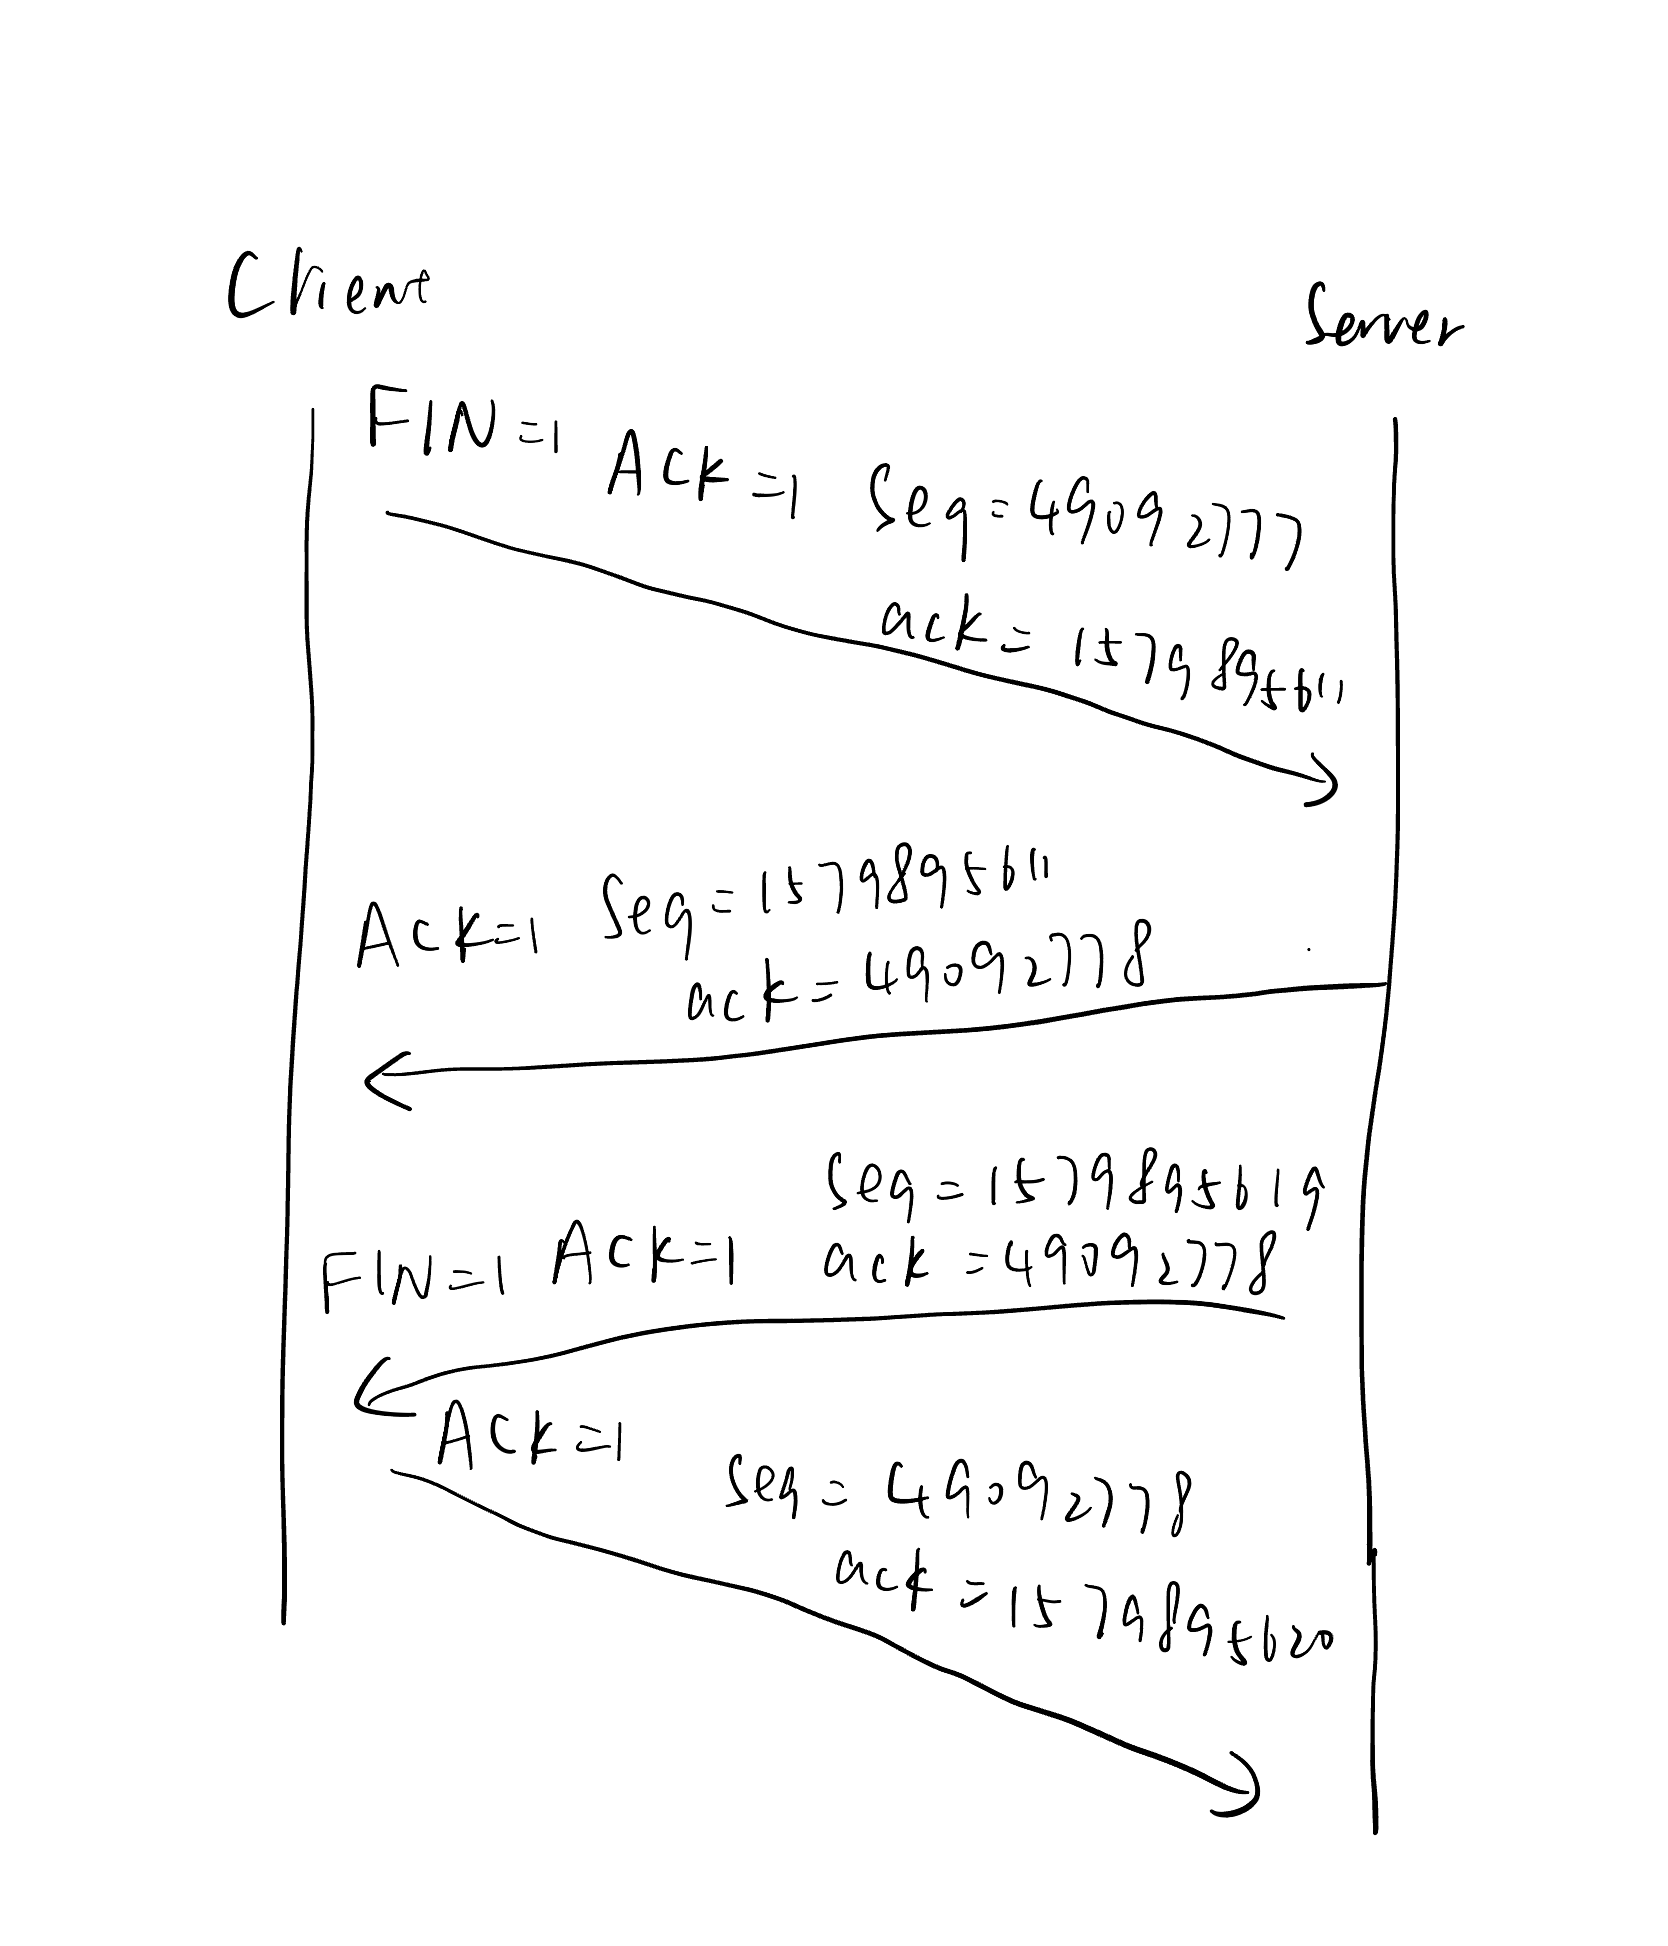 Client
Server
FIN=1 ACK=1 Seq=49092777
ack=1579895611
ACK=1 Seq=1579895611
ack=49092778
Seq=1579895619
FIN=1 ACK=1 ack=49092778
ACK=1
Seq=49092778
ack=1579895620